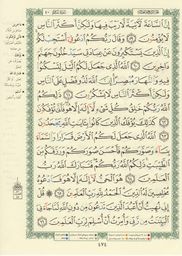 إِنَّ ٱلسَّاعَةَ لَءَاتِيَةٌ لَّا رَيْبَ فِيهَا وَلَٰكِنَّ أَكْثَرَ ٱلنَّاسِ
لَا يُؤْمِنُونَ ٥٩ وَقَالَ رَبُّكُمُ ٱدْعُونِىٓ أَسْتَجِبْ لَكُمْ
إِنَّ ٱلَّذِينَ يَسْتَكْبِرُونَ عَنْ عِبَادَتِى سَيَدْخُلُونَ جَهَنَّمَ
دَاخِرِينَ ٦٠ ٱللَّهُ ٱلَّذِى جَعَلَ لَكُمُ ٱلَّيْلَ لِتَسْكُنُوا۟
فِيهِ وَٱلنَّهَارَ مُبْصِرًا إِنَّ ٱللَّهَ لَذُو فَضْلٍ عَلَى ٱلنَّاسِ
وَلَٰكِنَّ أَكْثَرَ ٱلنَّاسِ لَا يَشْكُرُونَ ٦١ ذَٰلِكُمُ ٱللَّهُ
رَبُّكُمْ خَٰلِقُ كُلِّ شَىْءٍ لَّآ إِلَٰهَ إِلَّا هُوَ فَأَنَّىٰ تُؤْفَكُونَ ٦٢
كَذَٰلِكَ يُؤْفَكُ ٱلَّذِينَ كَانُوا۟ بِـَٔايَٰتِ ٱللَّهِ يَجْحَدُونَ
٦٣ ٱللَّهُ ٱلَّذِى جَعَلَ لَكُمُ ٱلْأَرْضَ قَرَارًا وَٱلسَّمَآءَ
بِنَآءً وَصَوَّرَكُمْ فَأَحْسَنَ صُوَرَكُمْ وَرَزَقَكُم مِّنَ
ٱلطَّيِّبَٰتِ ذَٰلِكُمُ ٱللَّهُ رَبُّكُمْ فَتَبَارَكَ ٱللَّهُ رَبُّ
ٱلْعَٰلَمِينَ ٦٤ هُوَ ٱلْحَىُّ لَآ إِلَٰهَ إِلَّا هُوَ فَٱدْعُوهُ
مُخْلِصِينَ لَهُ ٱلدِّينَ ٱلْحَمْدُ لِلَّهِ رَبِّ ٱلْعَٰلَمِينَ ٦٥ قُلْ إِنِّى
نُهِيتُ أَنْ أَعْبُدَ ٱلَّذِينَ تَدْعُونَ مِن دُونِ ٱللَّهِ لَمَّا جَآءَنِىَ
ٱلْبَيِّنَٰتُ مِن رَّبِّى وَأُمِرْتُ أَنْ أُسْلِمَ لِرَبِّ ٱلْعَٰلَمِينَ ٦٦
٤٧٤